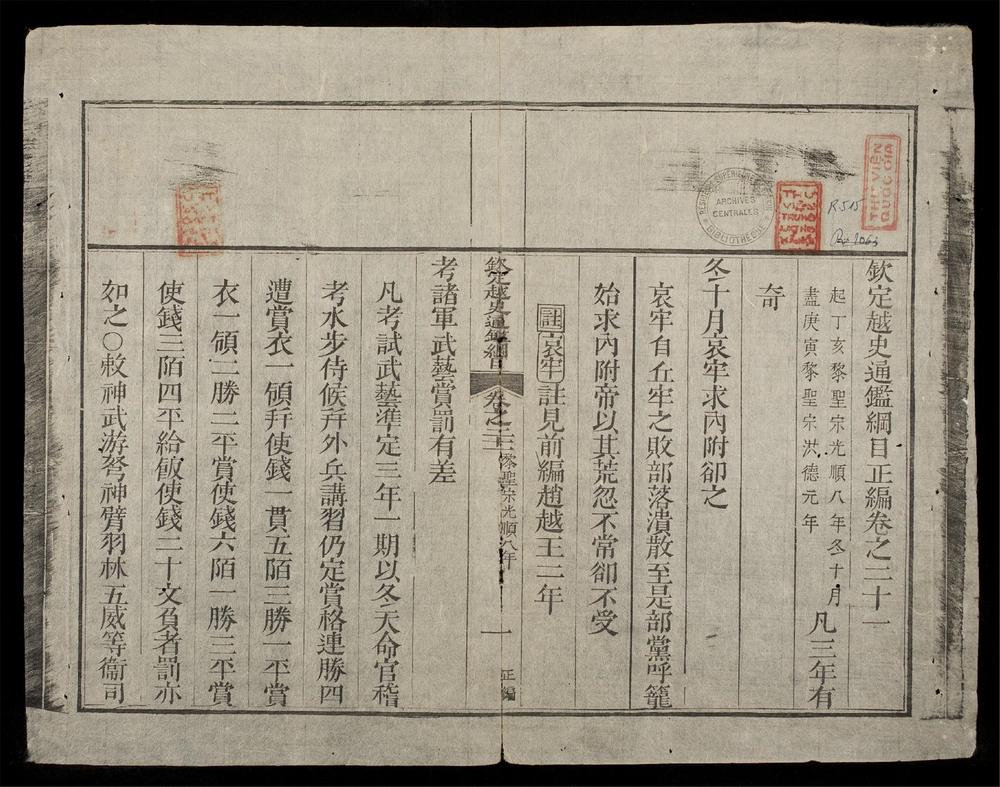 欽定越史通鑑綱目正編卷之二十一
起丁亥黎聖宗光順八年冬十月
盡庚寅黎聖宗洪德元年
凡三年有
奇
冬十月哀牢求內附卻之
哀牢自丘牢之敗部落潰散至是部黨呼籠
始求內附帝以其荒忽不常卻不受
註哀牢註見前編趙越王二年
欽定越史通鑑綱目
卷之二十一
黎聖宗光順八年
一
正編
考諸軍武藝賞罰有差
凡考試武藝準定三年一期以冬天命官稽
考水步侍候幷外兵講習仍定賞格連勝四
遭賞衣一領幷使錢一貫五陌三勝一平賞
衣一領二勝二平賞使錢六陌一勝三平賞
使錢三陌四平給飯使錢二十文負者罰亦
如之○敕神武游弩神臂羽林五威等衞司
THƯ VIỆN
QUỐC GIA
R 515
ARCHIVES
CENTRALES
BIBLIOTHÈQUE